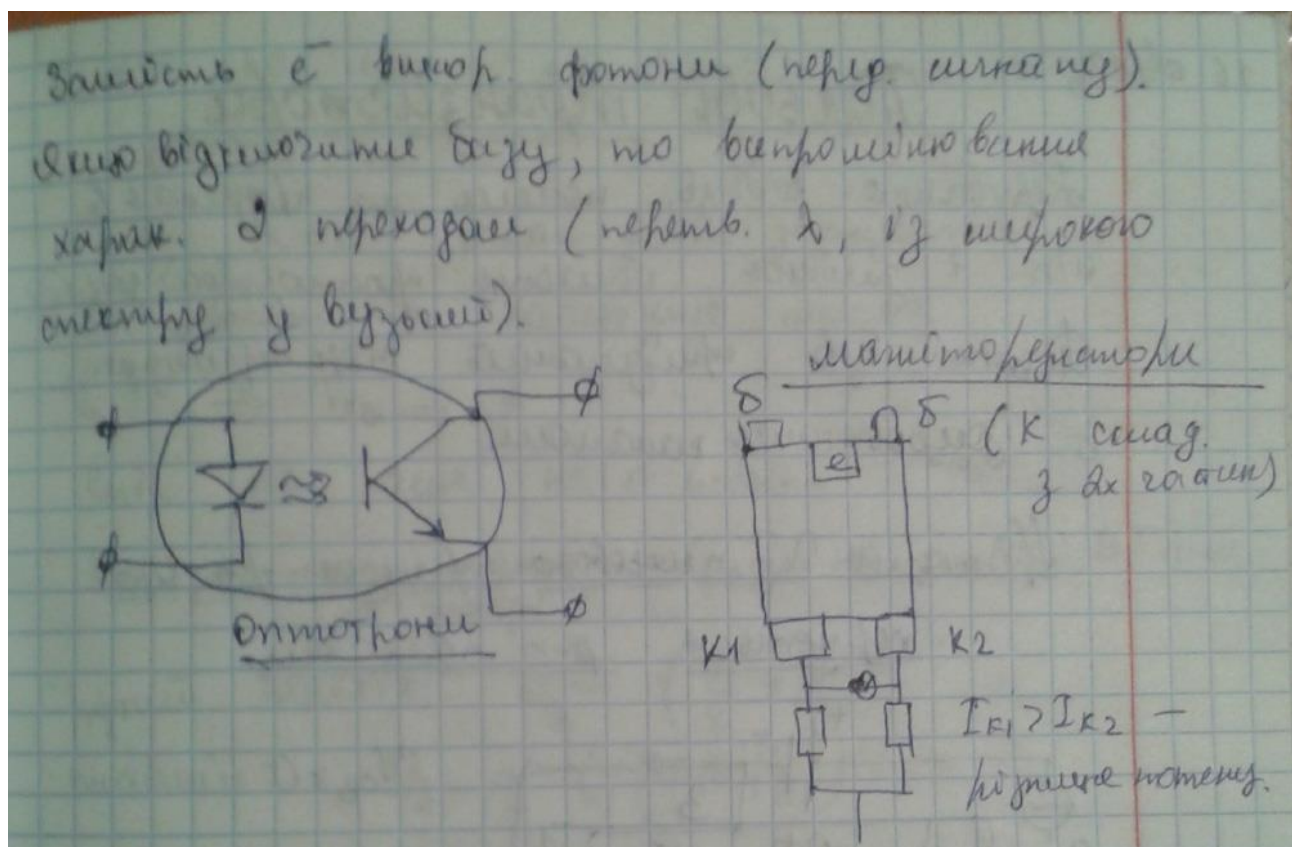 Замість e⁻ викор. фотони (перед. сигналу).
Якщо відключити базу, то випромінювання
харак. 2 переходам (перетв. λ, із широкого
спектру у вузький).
магніторезистори
б
б
(К склад.
e
з 2х частин)
Оптотрони
К1
К2
I_K1 > I_K2 –
різниця потенц.